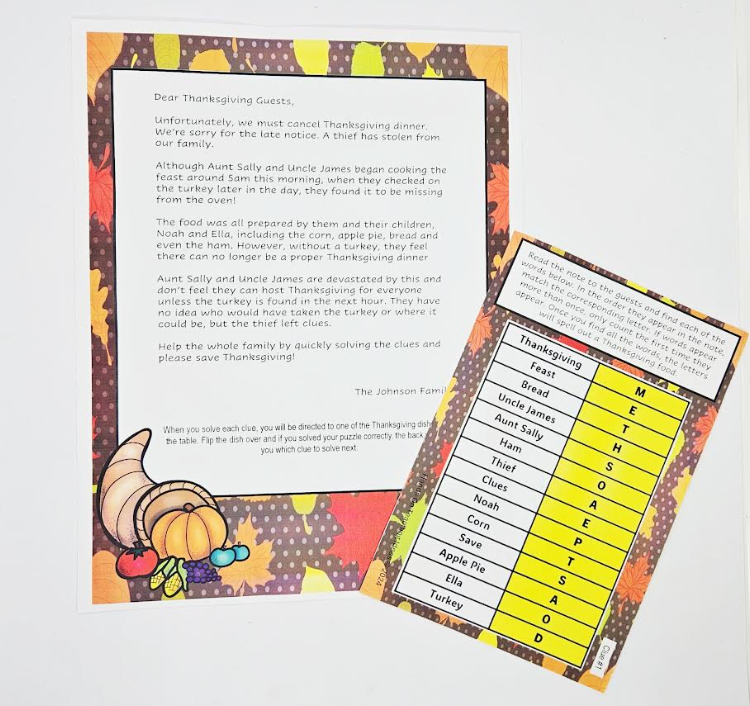 Dear Thanksgiving Guests,
Unfortunately, we must cancel Thanksgiving dinner.
We're sorry for the late notice. A thief has stolen from
our family.
Although Aunt Sally and Uncle James began cooking the
feast around 5am this morning, when they checked on
the turkey later in the day, they found it to be missing
from the oven!
The food was all prepared by them and their children,
Noah and Ella, including the corn, apple pie, bread and
even the ham. However, without a turkey, they feel
there can no longer be a proper Thanksgiving dinner
Aunt Sally and Uncle James are devastated by this and
don't feel they can host Thanksgiving for everyone
unless the turkey is found in the next hour. They have
no idea who would have taken the turkey or where it
could be, but the thief left clues.
Help the whole family by quickly solving the clues and
please save Thanksgiving!
The Johnson Famil
When you solve each clue, you will be directed to one of the Thanksgiving dish
the table. Flip the dish over and if you solved your puzzle correctly, the back
you which clue to solve next.
Read the note to the guests and find each of the
words below. In the order they appear in the note,
match the corresponding letter. If words appear
more than once, only count the first time they
appear. Once you find all the words, the letters
will spell out a Thanksgiving food.
Thanksgiving M
Feast E
Bread T
Uncle James H
Aunt Sally S
Ham O
Thief A
Clues E
Noah P
Corn T
Save S
Apple Pie A
Ella O
Turkey D
Clue #1
2024